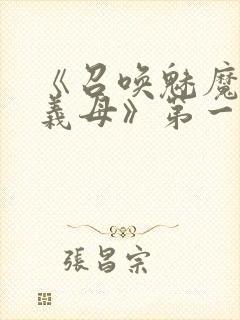 《召唤魅魔
義母》第一
張昌宗